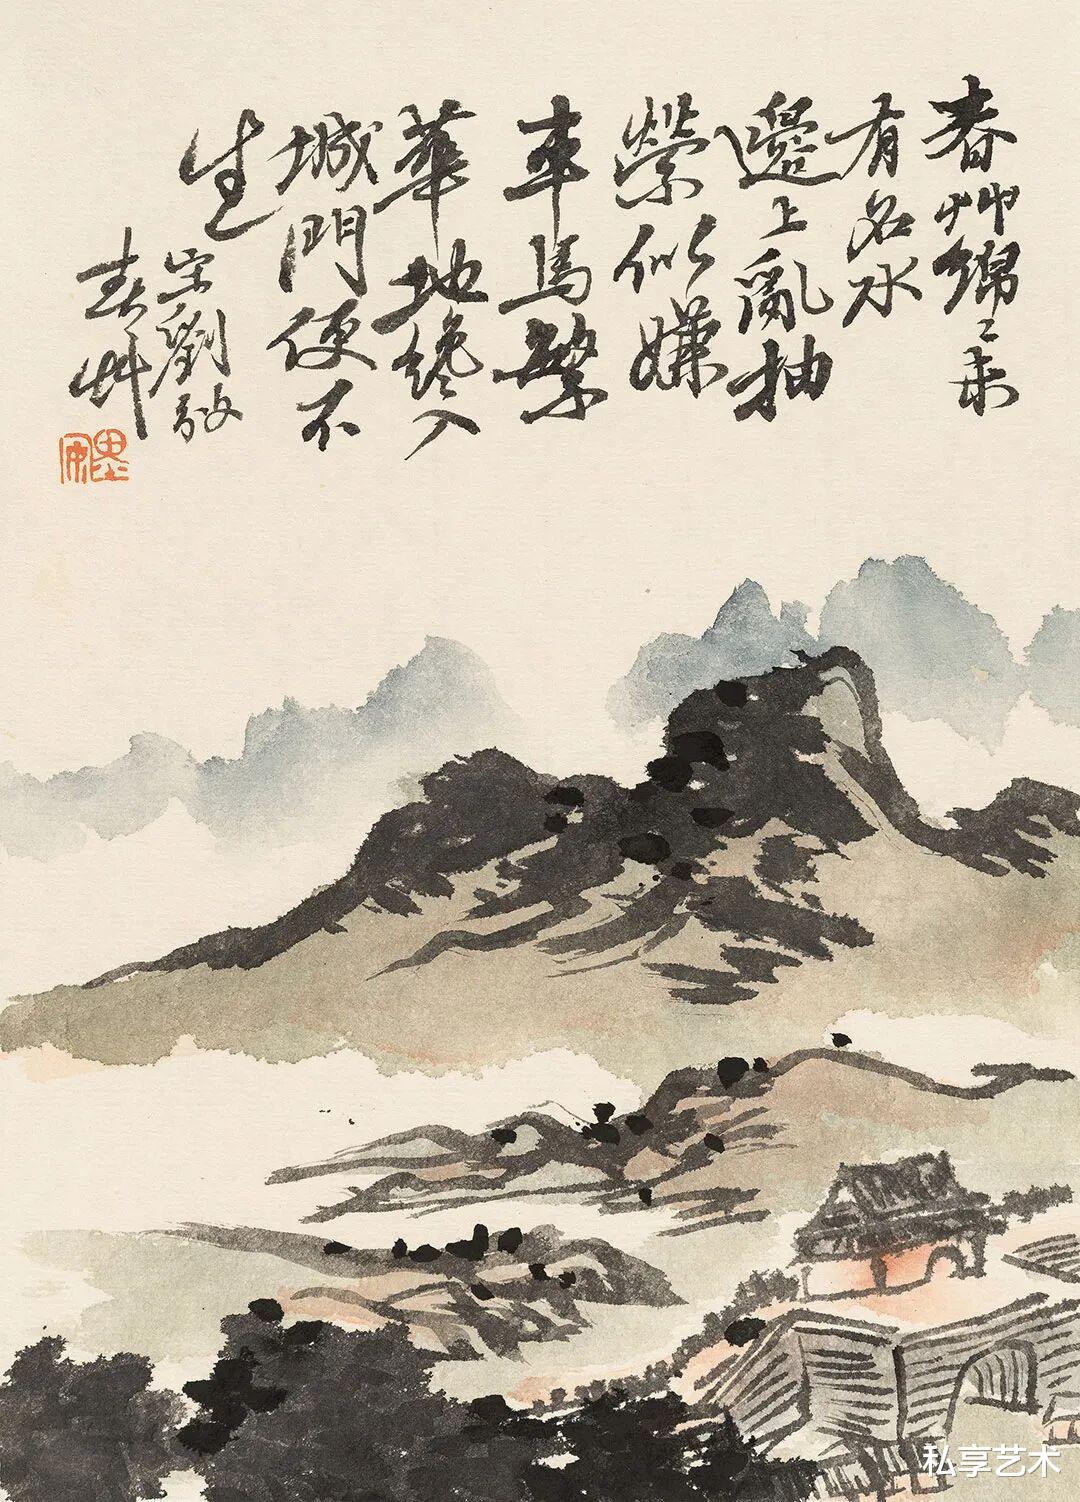 春艸綿〻未
有名水
邊上亂抽
榮似嫌
車馬繁
華地纔入
城門便不
生
宋劉敞
春艸
私享艺术